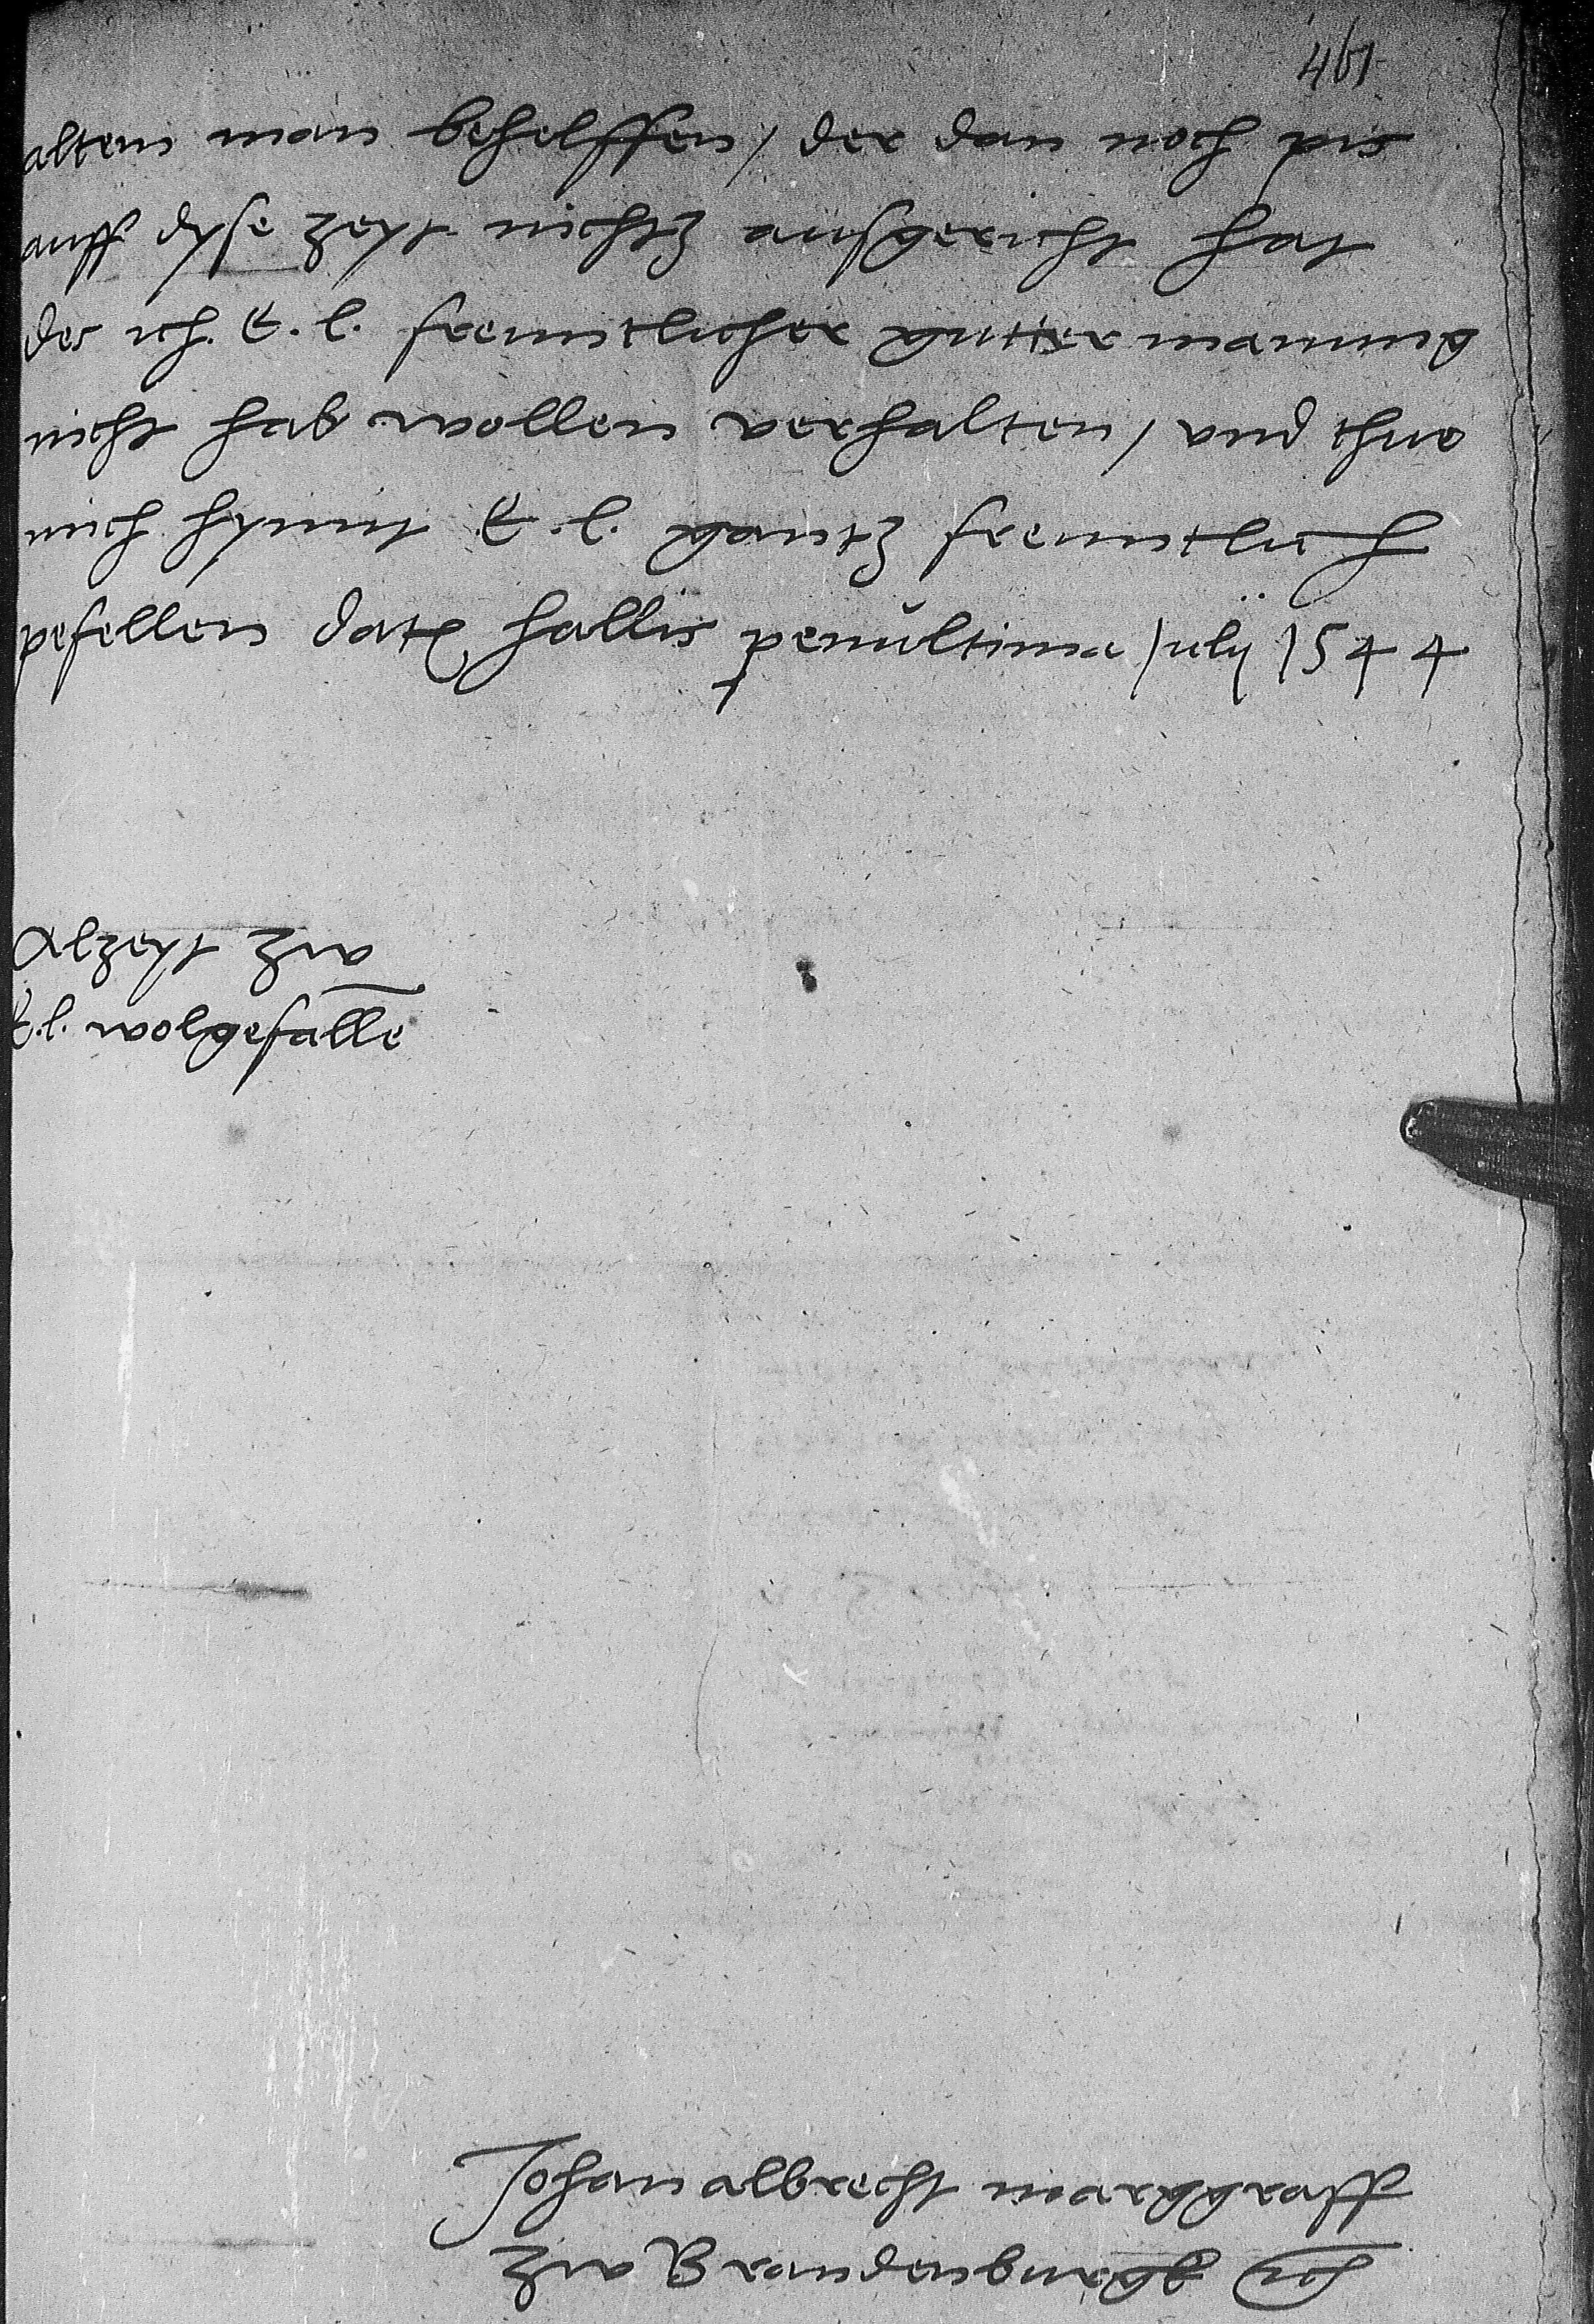 461
altem man behelffen / der dan noch pis
auff dyse zeyt nichtz ausgericht hat
des ich E. l. freuntlicher gutter manung
nicht hab wollen verhalten / vnd thue
mich hymit E. l. gantz freuntlich
pefellen dat hallis penultima July 1544
Alzeyt zu
E. l. wolgefalle
Johan albrecht marggraff
zu Brandenburg